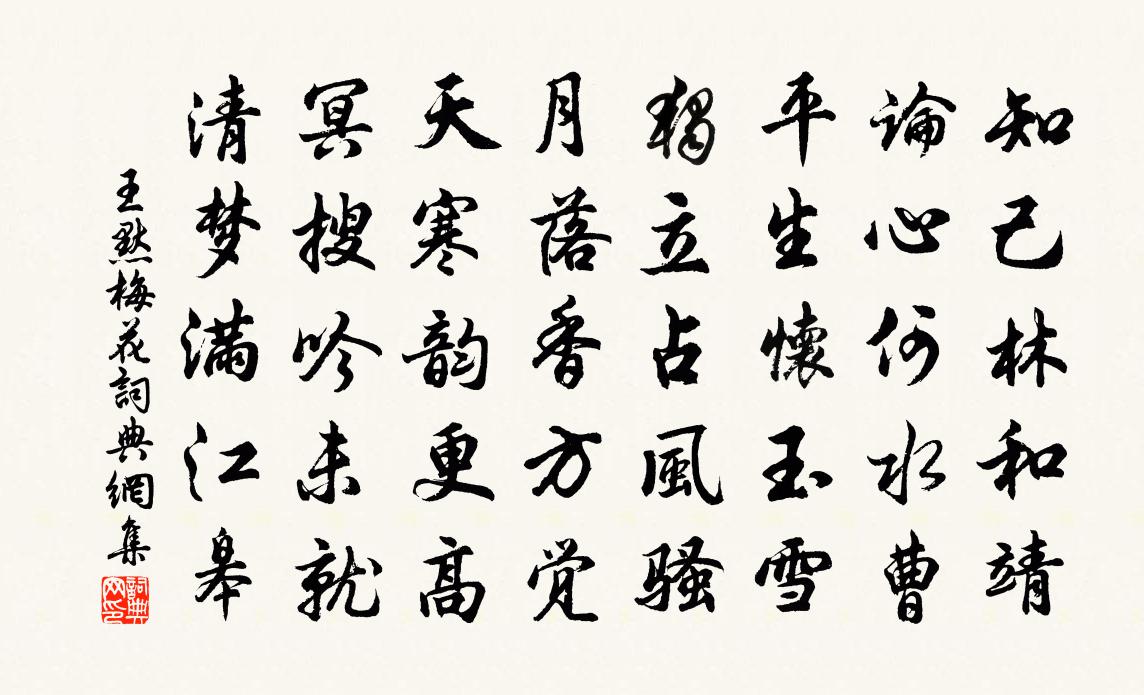 知己林和靖
論心何水曹
平生懷玉雪
獨立占風騷
月落香方觉
天寒韵更高
冥搜吟未就
清梦满江皋
王默梅花詞典網集
詞典网印